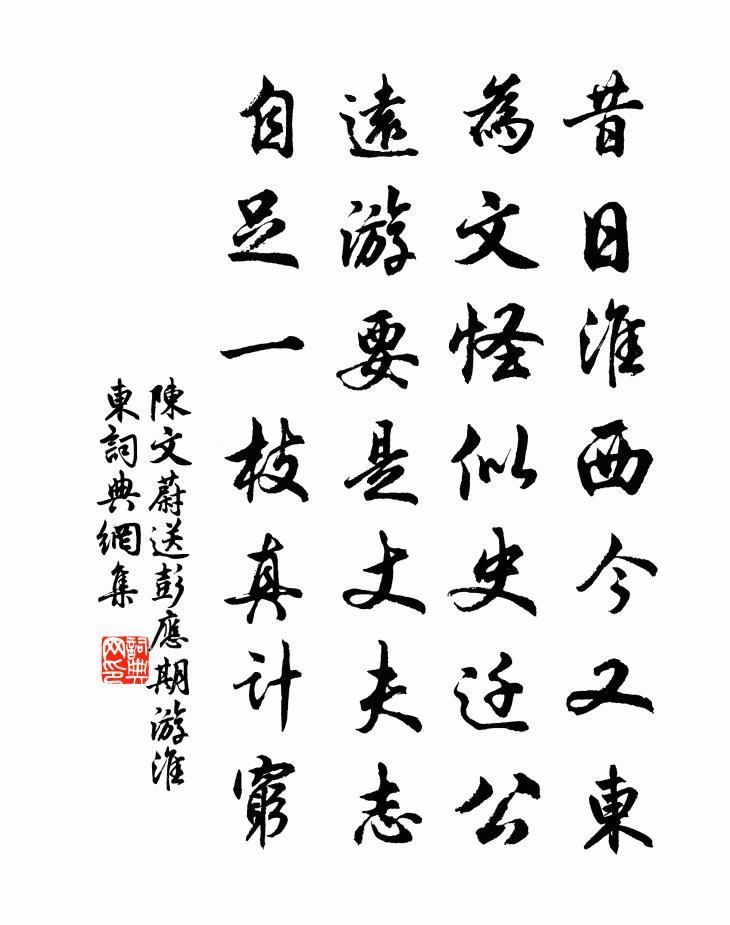 昔日淮西今又東
為文怪似史迁公
遠游要是丈夫志
自足一枝真计窮
陳文蔚送彭應期游淮
東詞典網集
詞典网印